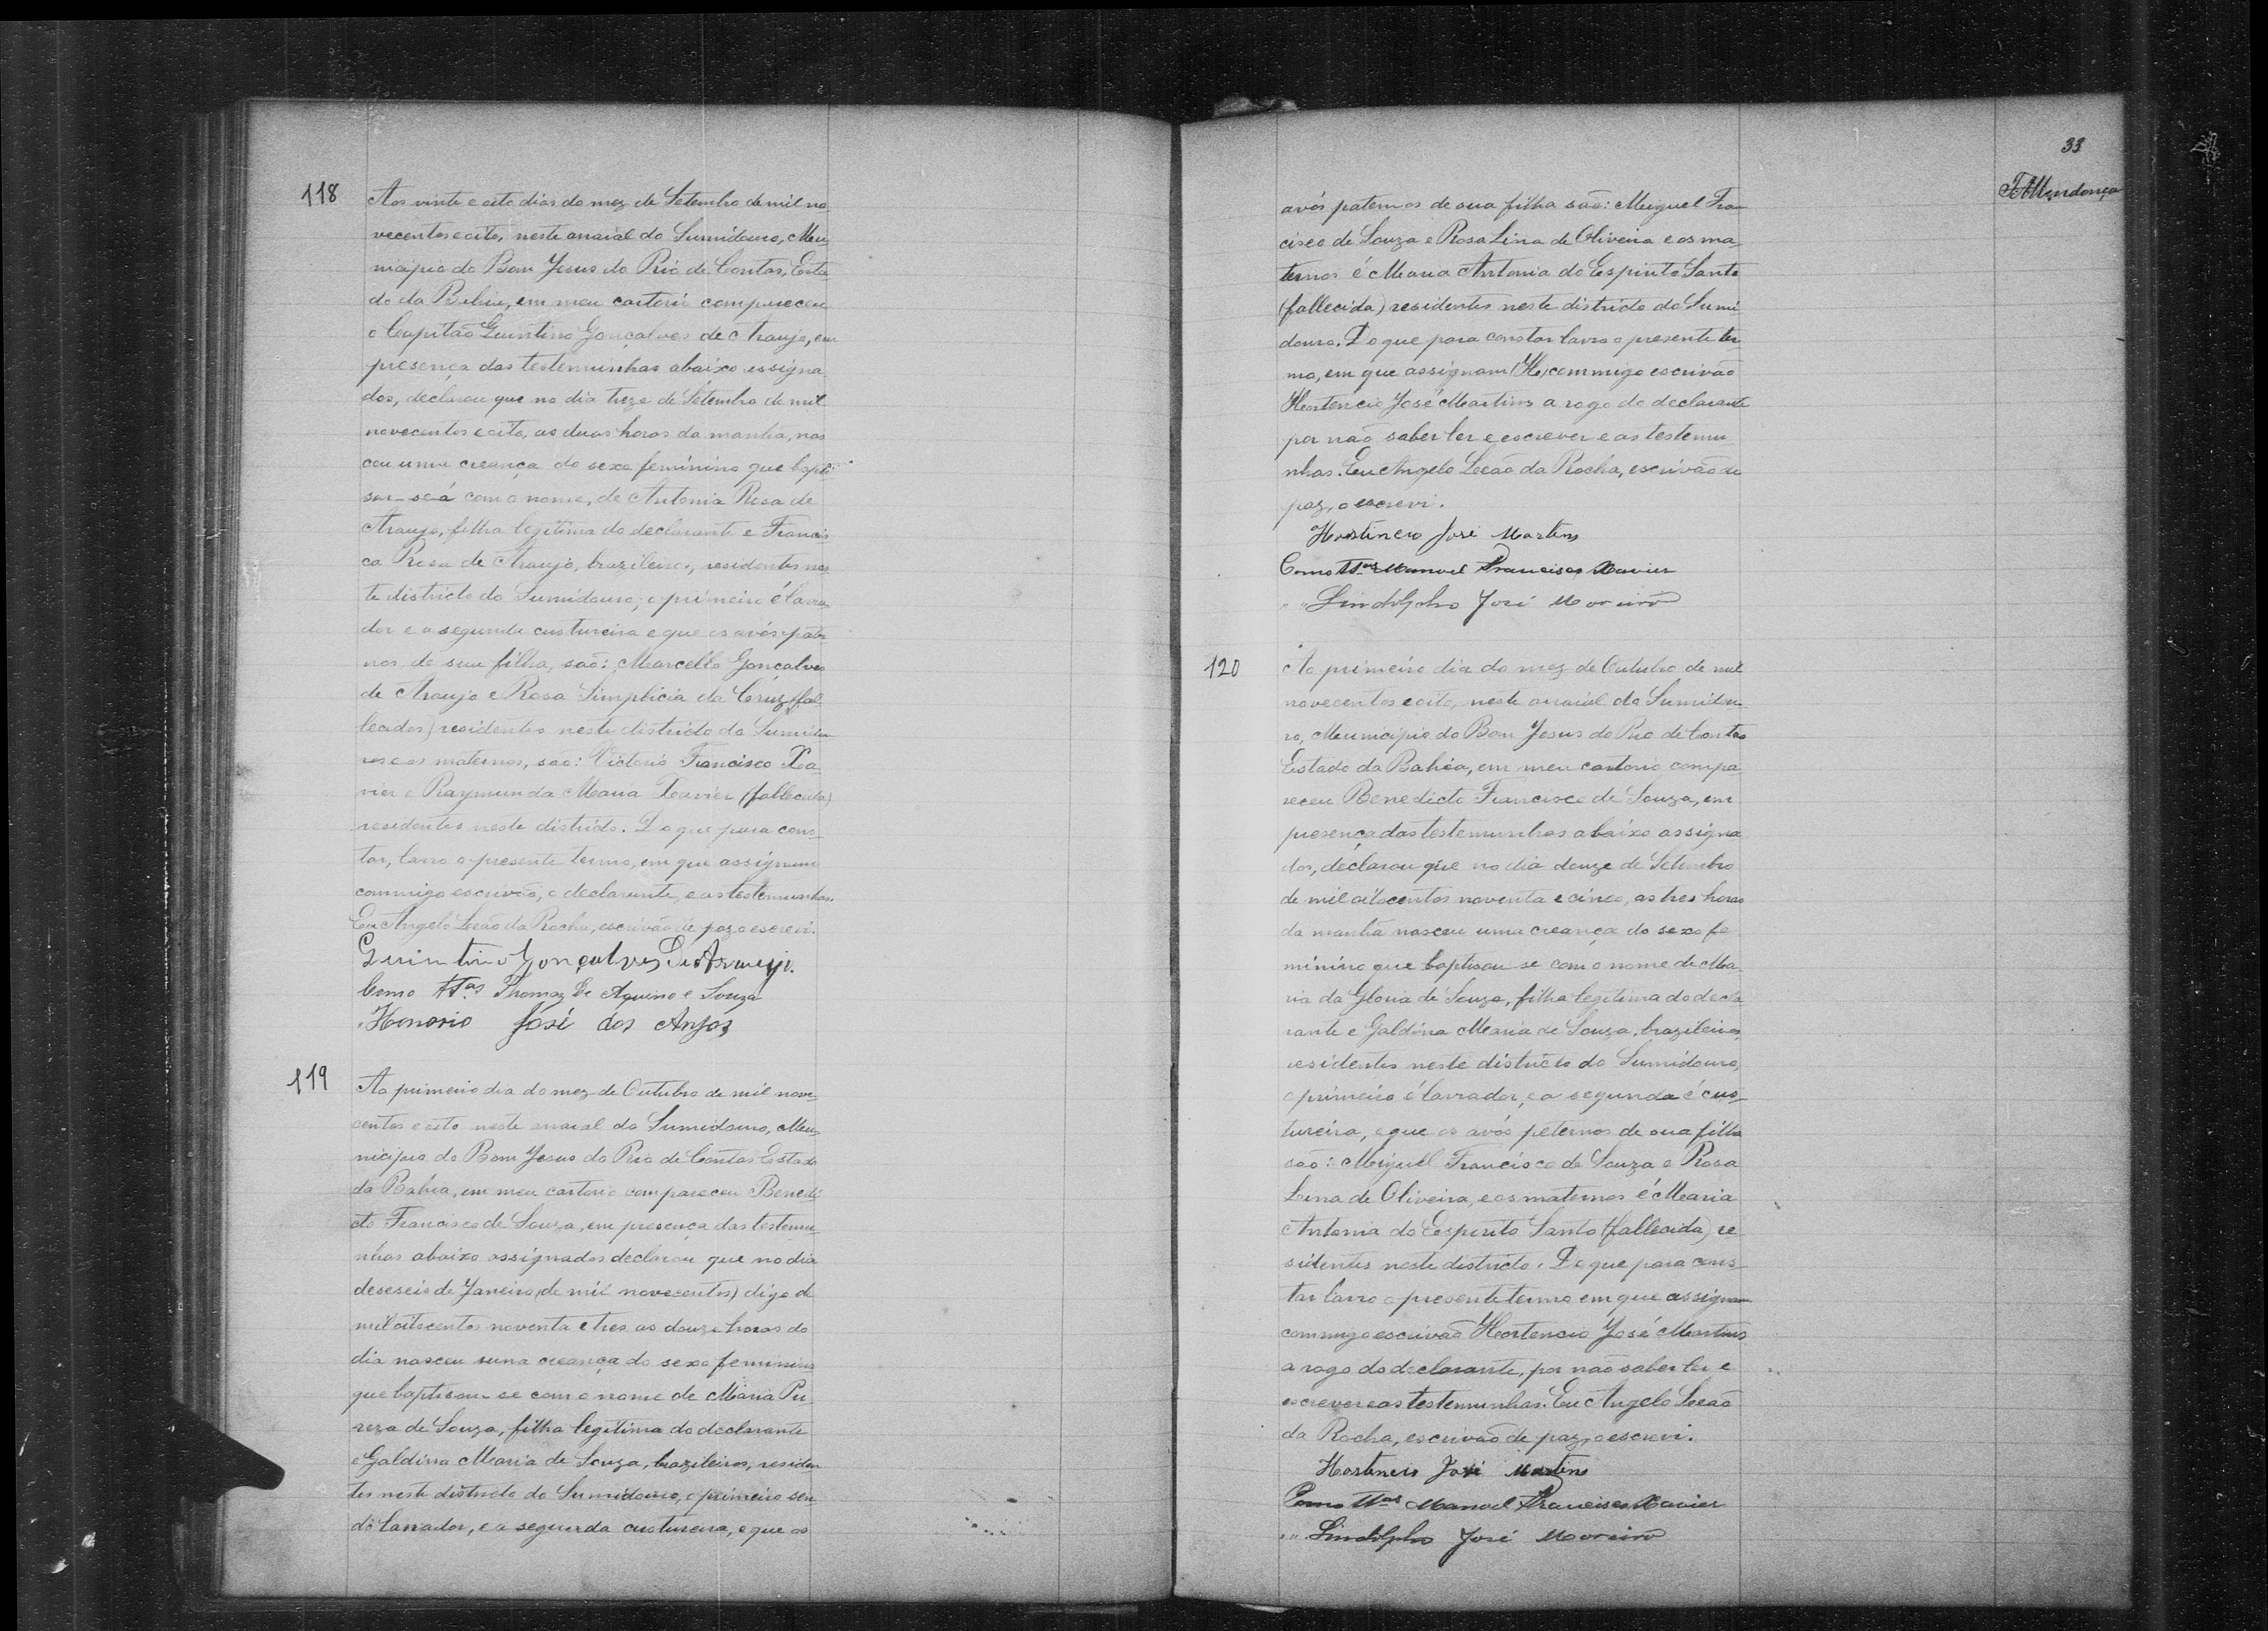 118
Aos vinte e oito dias do mez de Setembro de mil no
vecentos e oito, neste arraial do Sumidouro, Mu
nicipio do Bom Jesus do Rio de Contas, Esta
do da Bahia, em meu cartorio compareceu
o Capitão Quintino Gonçalves de Araujo, em
presença das testemunhas abaixo assigna
das, declarou que no dia treze de Setembro de mil
novecentos e oito, as duas horas da manhã, nas
ceu uma creança do sexo feminino que bapti
sar-se-á com o nome, de Antonia Rosa de
Araujo, filha legitima do declarante e Francis
ca Rosa de Araujo, brazileiros, residentes nes
te districto do Sumidouro; o primeiro é lavra
dor e a segunda custureira e que os avós pater
nos, de sua filha, são: Marcello Gonçalves
de Araujo e Rosa Simplicia da Cruz (fal
lecidos) residentes neste districto do Sumidou
ro e os maternos, são: Victorio Francisco Xa
vier e Raymunda Maria Xavier (fallecida)
residentes neste districto. Do que para cons-
tar, lavro o presente termo, em que assignam
commigo escrivão, o declarante, e as testemunhas.
Eu Angelo Leão da Rocha, escrivão de paz o escrevi.
Quintino Gonçalves De Araujo.
Como ttas Thomaz de Aquino e Souza
Honorio José dos Anjos
119
Ao primeiro dia do mez de Outubro de mil nove
centos e oito neste arraial do Sumidouro, Mu
nicipio do Bom Jesus do Rio de Contas Estado
da Bahia, em meu cartorio compareceu Benedi
cto Francisco de Souza, em presença das testemu
nhas abaixo assignados declarou que no dia
deseseis de Janeiro (de mil novecentos) digo de
mil oitocentos noventa e tres as douze horas do
dia nasceu uma creança do sexo feminino
que baptisou-se com o nome de Maria Pu
reza de Souza, filha legitima do declarante
e Galdina Maria de Souza, brazileiros, residen
tes neste districto do Sumidouro, o primeiro sen
do lavrador, e a segunda custureira, e que os
33
FMendonça
avós paternos de sua filha são: Miguel Fran
cisco de Souza e Rosa Lina de Oliveira e os ma
ternos é Maria Antonia do Espirito Santo
(fallecida) residentes neste districto do Sumi
douro. Do que para constar lavro o presente ter
mo, em que assignam (H) commigo escrivão
Hortencio José Martins a rogo do declarante
por não saber ler e escrever e as testemu
nhas. Eu Angelo Leão da Rocha, escrivão de
paz, o escrevi.
Hortincio José Martins
Como ttas Manoel Francisco Xavier
" " Lindolpho José Moreira
120
Ao primeiro dia do mez de Outubro de mil
novecentos e oito, neste arraial do Sumidou
ro, Municipio do Bom Jesus do Rio de Contas
Estado da Bahia, em meu cartorio compa
receu Benedicto Francisco de Souza, em
presença das testemunhas abaixo assigna
das, declarou que no dia douze de Setembro
de mil oitocentos noventa e cinco, as tres horas
da manhã nasceu uma creança do sexo fe
minino que baptisou-se com o nome de Ma
ria da Gloria de Souza, filha legitima do decla
rante e Galdina Maria de Souza, brazileiros,
residentes neste districto do Sumidouro,
o primeiro é lavrador, e a segunda é cus
tureira, e que os avós peternos de sua filha
são: Miguel Francisco de Souza e Rosa
Lina de Oliveira, e os maternos é Maria
Antonia do Espirito Santo (fallecida) re
sidentes neste districto. Do que para cons
tar lavro o presente termo em que assignam
commigo escrivão Hortencio José Martins
a rogo do declarante, por não saber ler e
escrever e as testemunhas. Eu Angelo Leão
da Rocha, escrivão de paz, o escrevi.
Hortencio José Martins
Como ttas Manoel Francisco Xavier
" " Lindolpho José Moreira